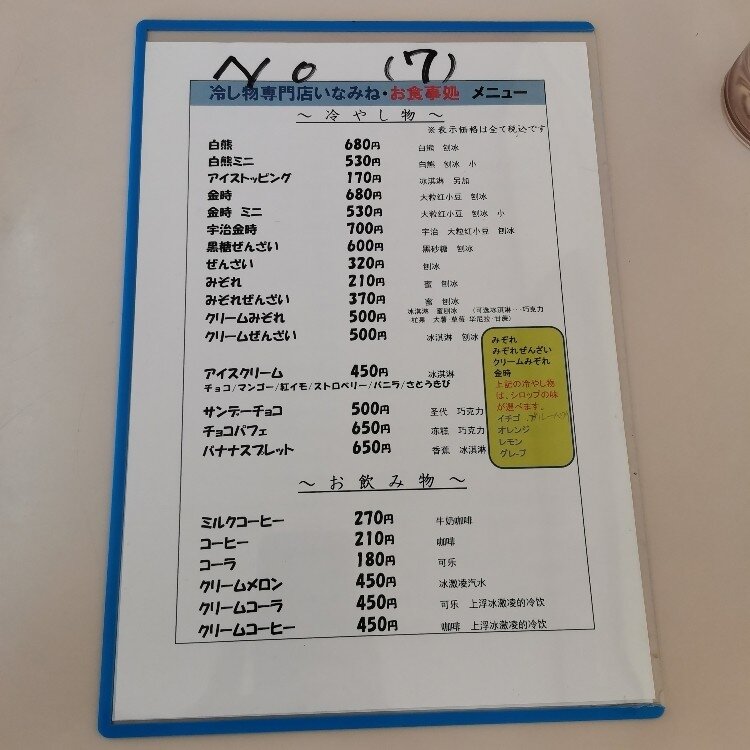 No (7)
冷し物専門店いなみね・お食事処 メニュー
～ 冷やし物 ～
※表示価格は全て税込です
白熊 680円 白熊 刨冰
白熊ミニ 530円 白熊 刨冰 小
アイストッピング 170円 冰淇淋 另加
金時 680円 大粒红小豆 刨冰
金時 ミニ 530円 大粒红小豆 刨冰 小
宇治金時 700円 宇治 大粒红小豆 刨冰
黒糖ぜんざい 600円 黑砂糖 刨冰
ぜんざい 320円 刨冰
みぞれ 210円 蜜 刨冰
みぞれぜんざい 370円 蜜 刨冰
クリームみぞれ 500円 冰淇淋 蜜刨冰 （可选冰淇淋・・巧克力
芒果 大薯 草莓 华尼拉 甘蔗）
クリームぜんざい 500円 冰淇淋 刨冰
アイスクリーム 450円 冰淇淋
チョコ/マンゴー/紅イモ/ストロベリー/バニラ/さとうきび
サンデーチョコ 500円 圣代 巧克力
チョコパフェ 650円 冻糕 巧克力
バナナスプレット 650円 香蕉 冰淇淋
みぞれ
みぞれぜんざい
クリームみぞれ
金時
上記の冷やし物
は、シロップの味
が選べます。
イチゴ
オレンジ
レモン
グレープ
～ お飲み物 ～
ミルクコーヒー 270円 牛奶咖啡
コーヒー 210円 咖啡
コーラ 180円 可乐
クリームメロン 450円 冰激凌汽水
クリームコーラ 450円 可乐 上浮冰激凌的冷饮
クリームコーヒー 450円 咖啡 上浮冰激凌的冷饮